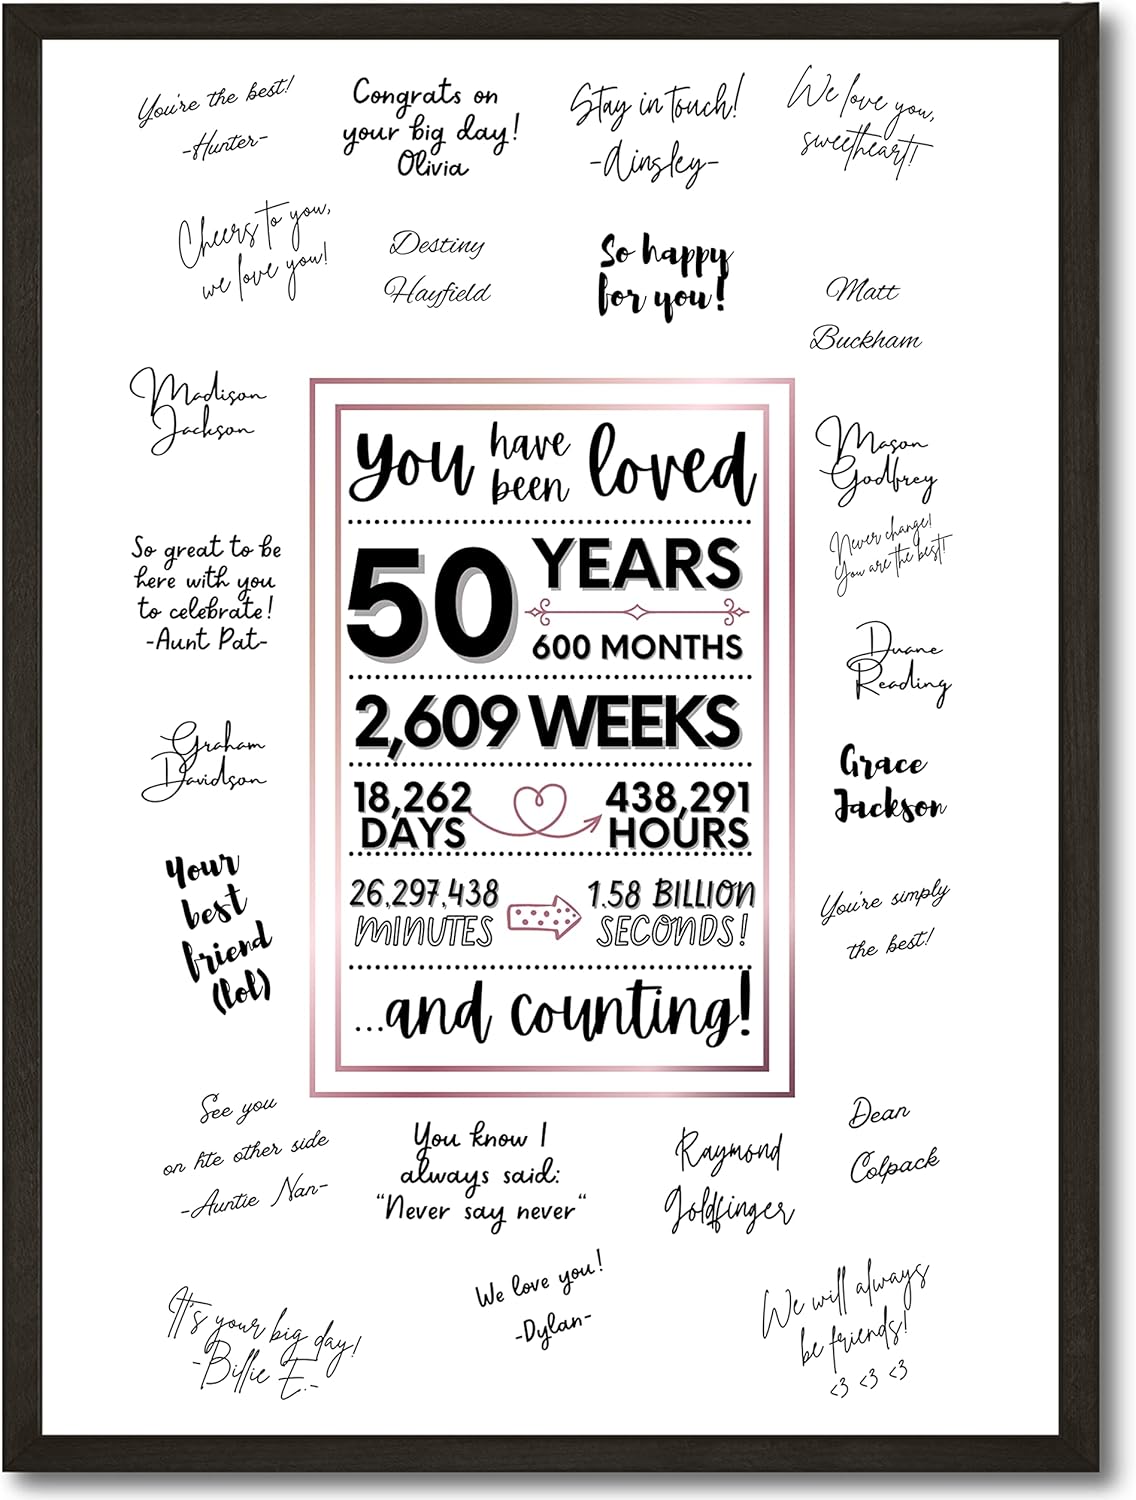 You're the best!
-Hunter-
Congrats on
your big day!
Olivia
Stay in touch!
-Ainsley-
We love you,
sweetheart!
Cheers to you,
we love you!
Destiny
Hayfield
So happy
for you!
Matt
Buckham
Madison
Jackson
Mason
Godfrey
Never change!
You are the best!
So great to be
here with you
to celebrate!
-Aunt Pat-
Duane
Reading
Graham
Davidson
Grace
Jackson
Your
best
friend
(lol)
You're simply
the best!
You have been loved
50 YEARS
600 MONTHS
2,609 WEEKS
18,262 DAYS
438,291 HOURS
26,297,438 MINUTES
1.58 BILLION SECONDS!
...and counting!
See you
on hte other side
-Auntie Nan-
You know I
always said:
"Never say never"
Raymond
Goldfinger
Dean
Colpack
It's your big day!
-Billie E.-
We love you!
-Dylan-
We will always
be friends!
<3 <3 <3